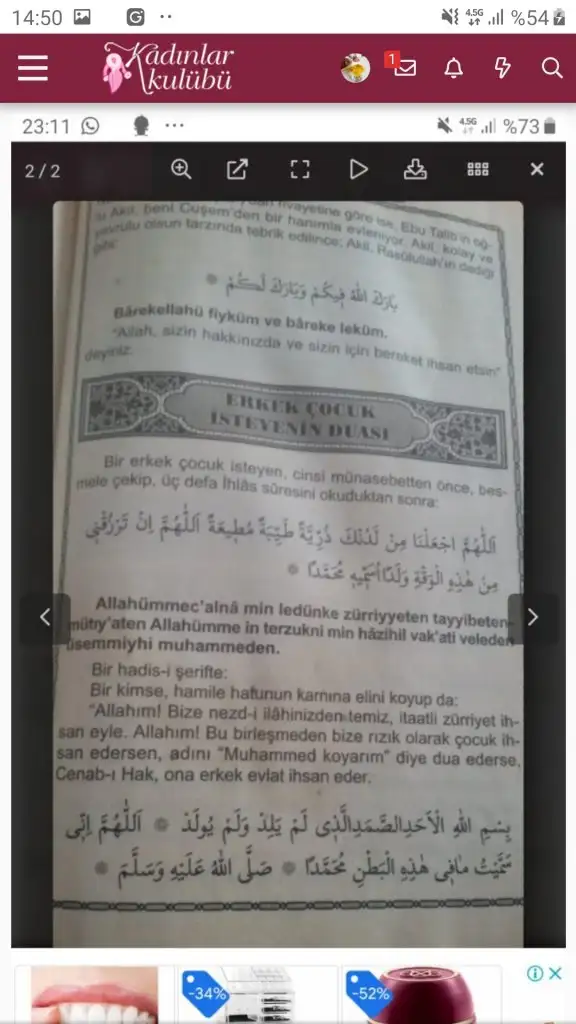 14:50 4.5G %54
Kadınlar
kulübü
1
23:11 4.5G %73
2 / 2
rivayetine göre ise, Ebu Talib'in oğ-
lu Akil, beni Cüşem'den bir hanımla evleniyor. Akil, kolay ve
olsun tarzında tebrik edilince; Akil, Rasûlullah'ın dediği
gibi:
بَارَكَ اللهُ فِيكُمْ وَبَارَكَ لَكُمْ
Bârekellahü fiyküm ve bâreke leküm.
"Allah, sizin hakkınızda ve sizin için bereket ihsan etsin"
deyiniz.
ERKEK ÇOCUK
İSTEYENİN DUASI
Bir erkek çocuk isteyen, cinsî münasebetten önce, bes-
mele çekip, üç defa İhlâs sûresini okuduktan sonra:
اَللّٰهُمَّ اجْعَلْنَا مِنْ لَدُنْكَ ذُرِّيَّةً طَيِّبَةً مُطِيعَةً اَللّٰهُمَّ اِنْ تَرْزُقْنِى
مِنْ هٰذِهِ الْوَقْةِ وَلَدًا اُسَمِّيهِ مُحَمَّدًا
Allahümmec'alnâ min ledünke zürriyyeten tayyibeten
mütıy'aten Allahümme in terzukni min hâzihil vak'ati veleden
üsemmiyhi muhammeden.
Bir hadis-i şerifte:
Bir kimse, hamile hatunun karnına elini koyup da:
"Allahım! Bize nezd-i ilâhinizden temiz, itaatli zürriyet ih-
san eyle. Allahım! Bu birleşmeden bize rızık olarak çocuk ih-
san edersen, adını "Muhammed koyarım" diye dua ederse,
Cenab-ı Hak, ona erkek evlat ihsan eder.
بِسْمِ اللهِ الْاَحَدِالصَّمَدِالَّذِى لَمْ يَلِدْ وَلَمْ يُولَدْ اَللّٰهُمَّ اِنِّى
سَمَّيْتُ مَافِى هٰذِهِ الْبَطْنِ مُحَمَّدًا صَلَّى اللهُ عَلَيْهِ وَسَلَّمَ
-34%
-52%